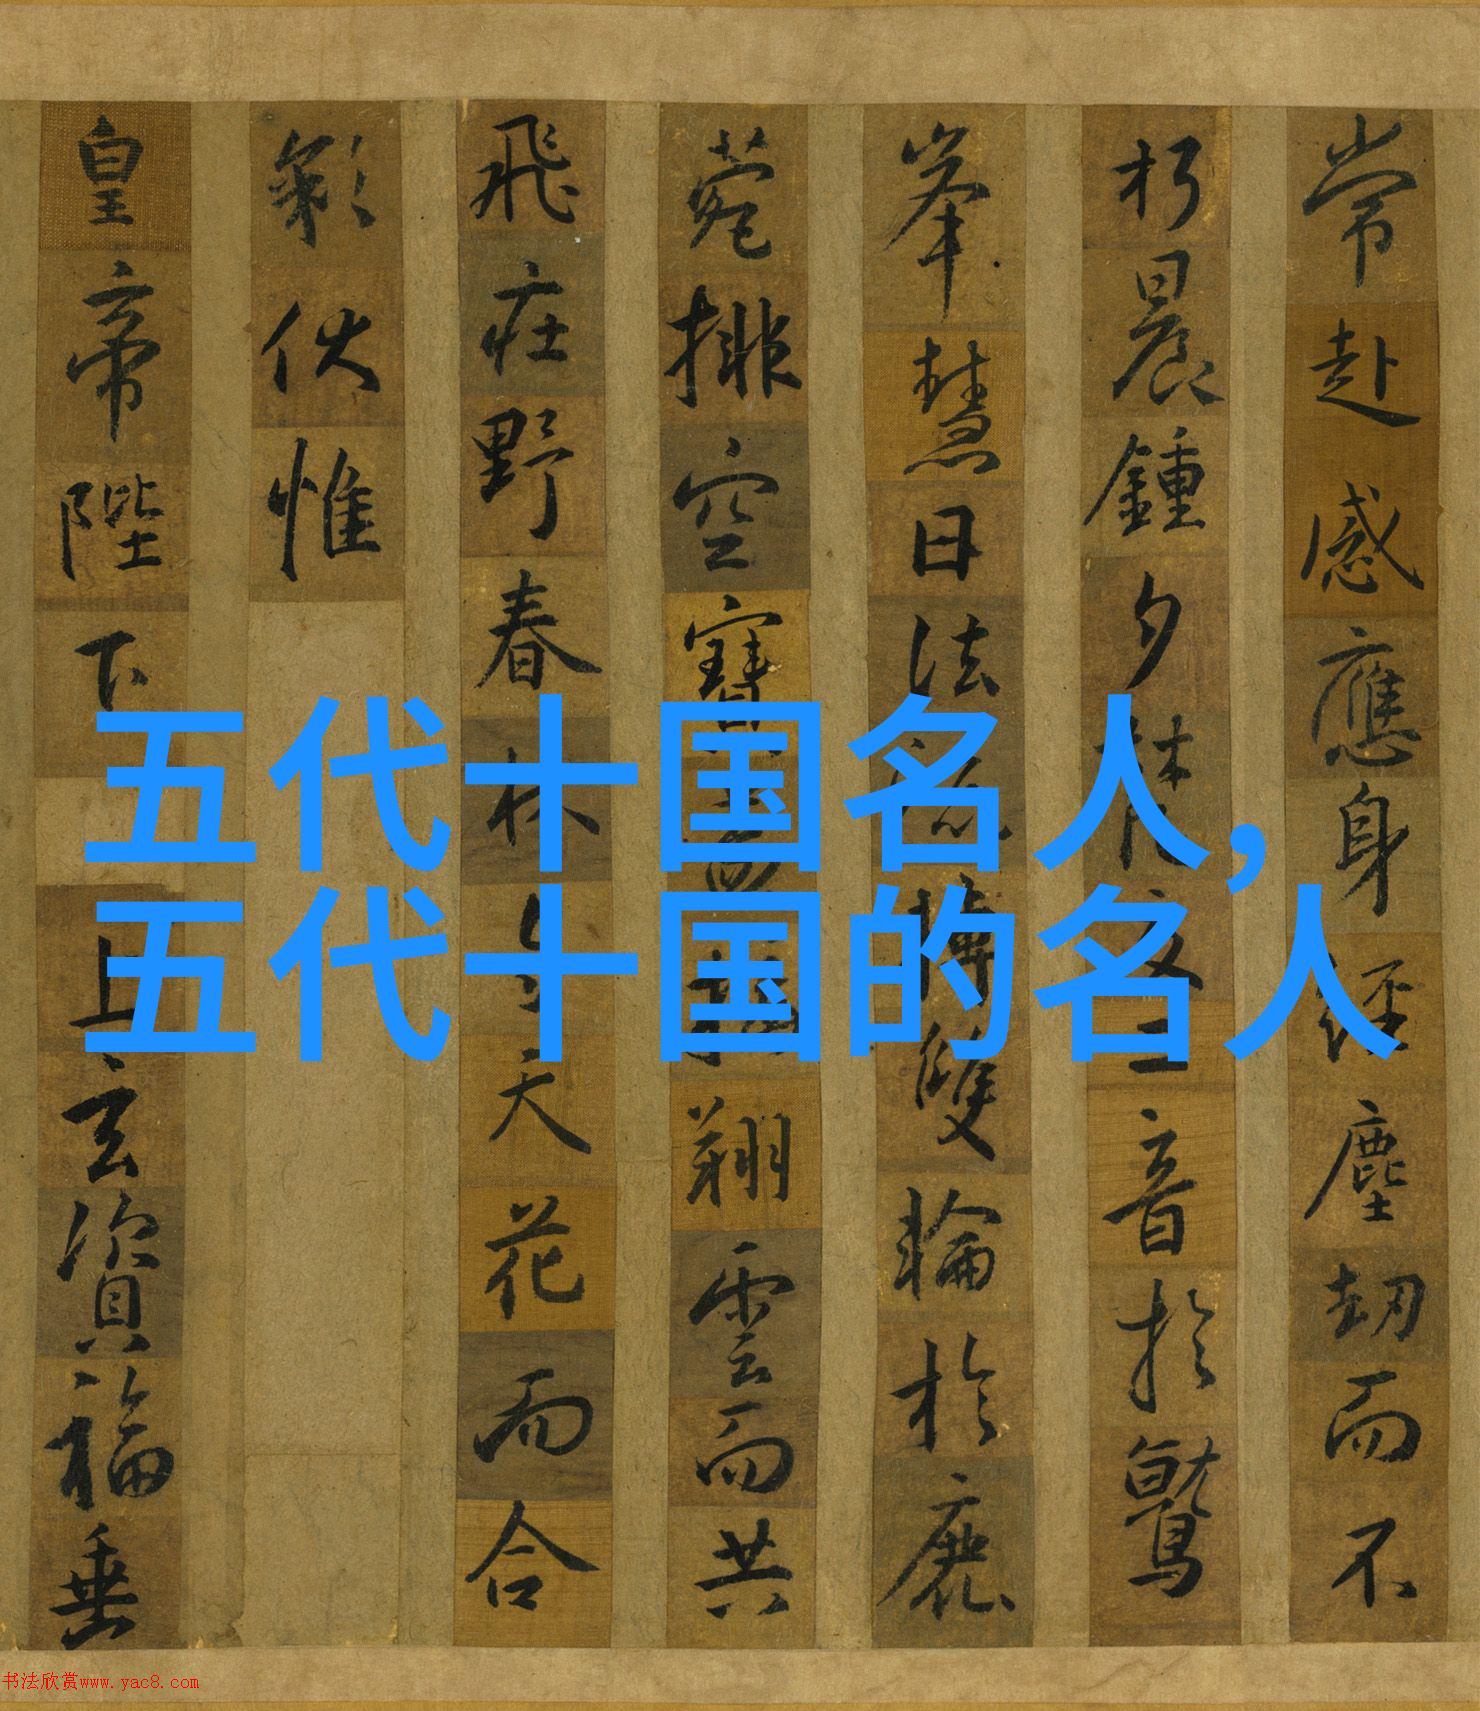 五代十国名人,
五代十国的名人
常赴感應身經塵劫而不
朽晨鍾夕梵交二音於鷲
峯慧日法轉雙輪於鹿
菀排空寶翔雲而共
飛莊野春林天花而合
彩伏惟
皇帝陛下上玄資福垂
书法欣赏www.yac8.com